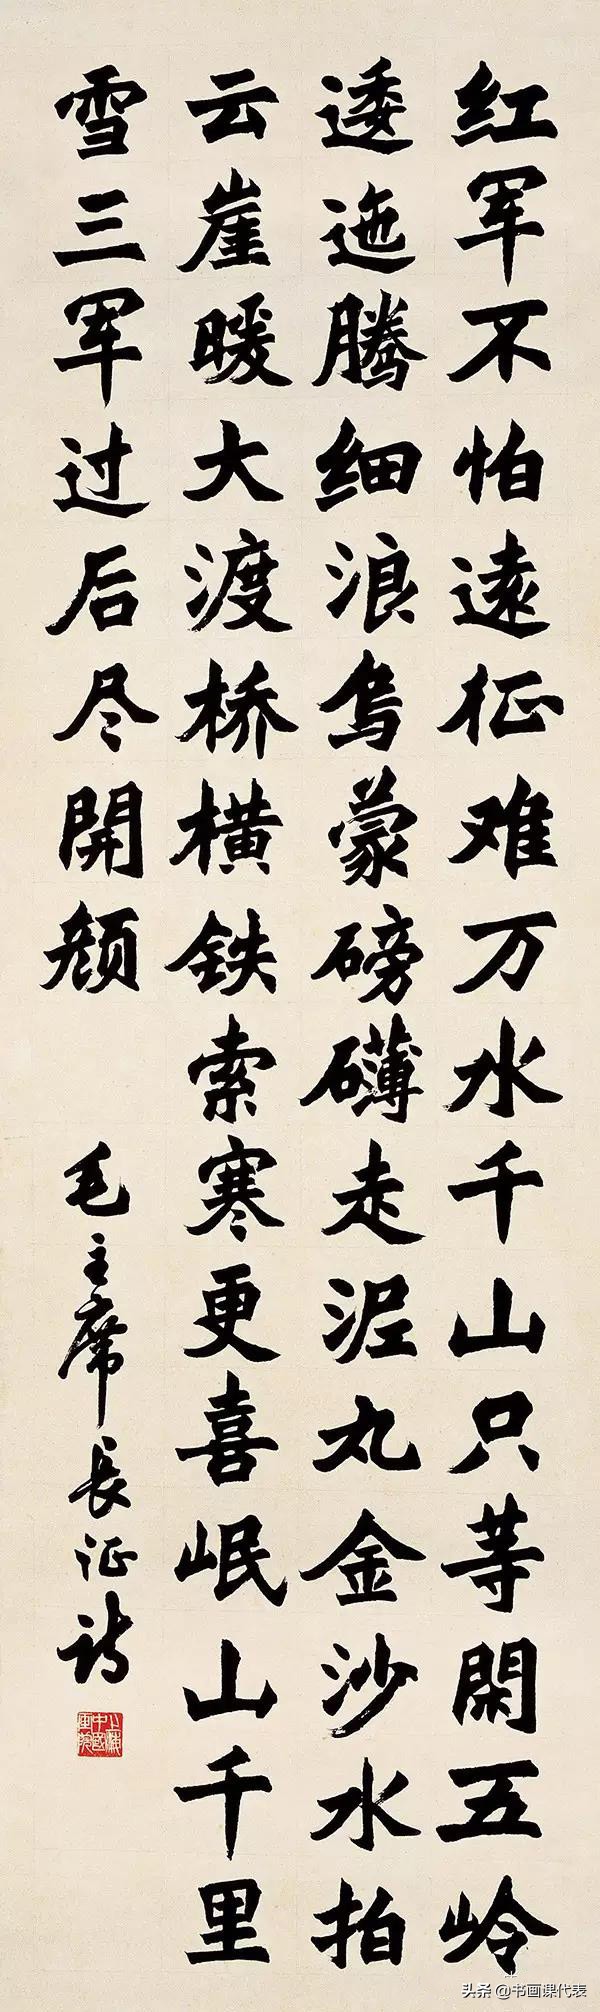 红军不怕遠征难万水千山只等閑五岭
逶迤腾细浪乌蒙磅礴走泥丸金沙水拍
云崖暖大渡桥横铁索寒更喜岷山千里
雪三军过后尽開颜
毛主席长征诗
上海中國画院
头条 @书画课代表